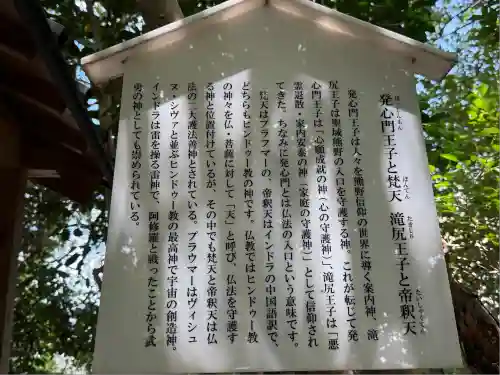 発心門王子と梵天 滝尻王子と帝釈天
ほっしんもん ぼんてん たきじり たいしゃくてん
発心門王子は人々を熊野信仰の世界に導く案内神、滝
尻王子は聖域熊野の入口を守護する神。これが転じて発
心門王子は「心願成就の神(心の守護神)」、滝尻王子は「悪
霊退散・家内安泰の神(家庭の守護神)」として信仰され
てきた。ちなみに発心門とは仏法の入口という意味です。
梵天はブラフマーの、帝釈天はインドラの中国語訳で、
どちらもヒンドゥー教の神です。仏教ではヒンドゥー教
の神々を仏・菩薩に対して「天」と呼び、仏法を守護す
る神と位置付けているが、その中でも梵天と帝釈天は仏
法の二大護法善神とされている。ブラウマーはヴィシュ
ヌ・シヴァと並ぶヒンドゥー教の最高神で宇宙の創造神。
インドラは雷を操る雷神で、阿修羅と戦ったことから武
勇の神としても崇められている。